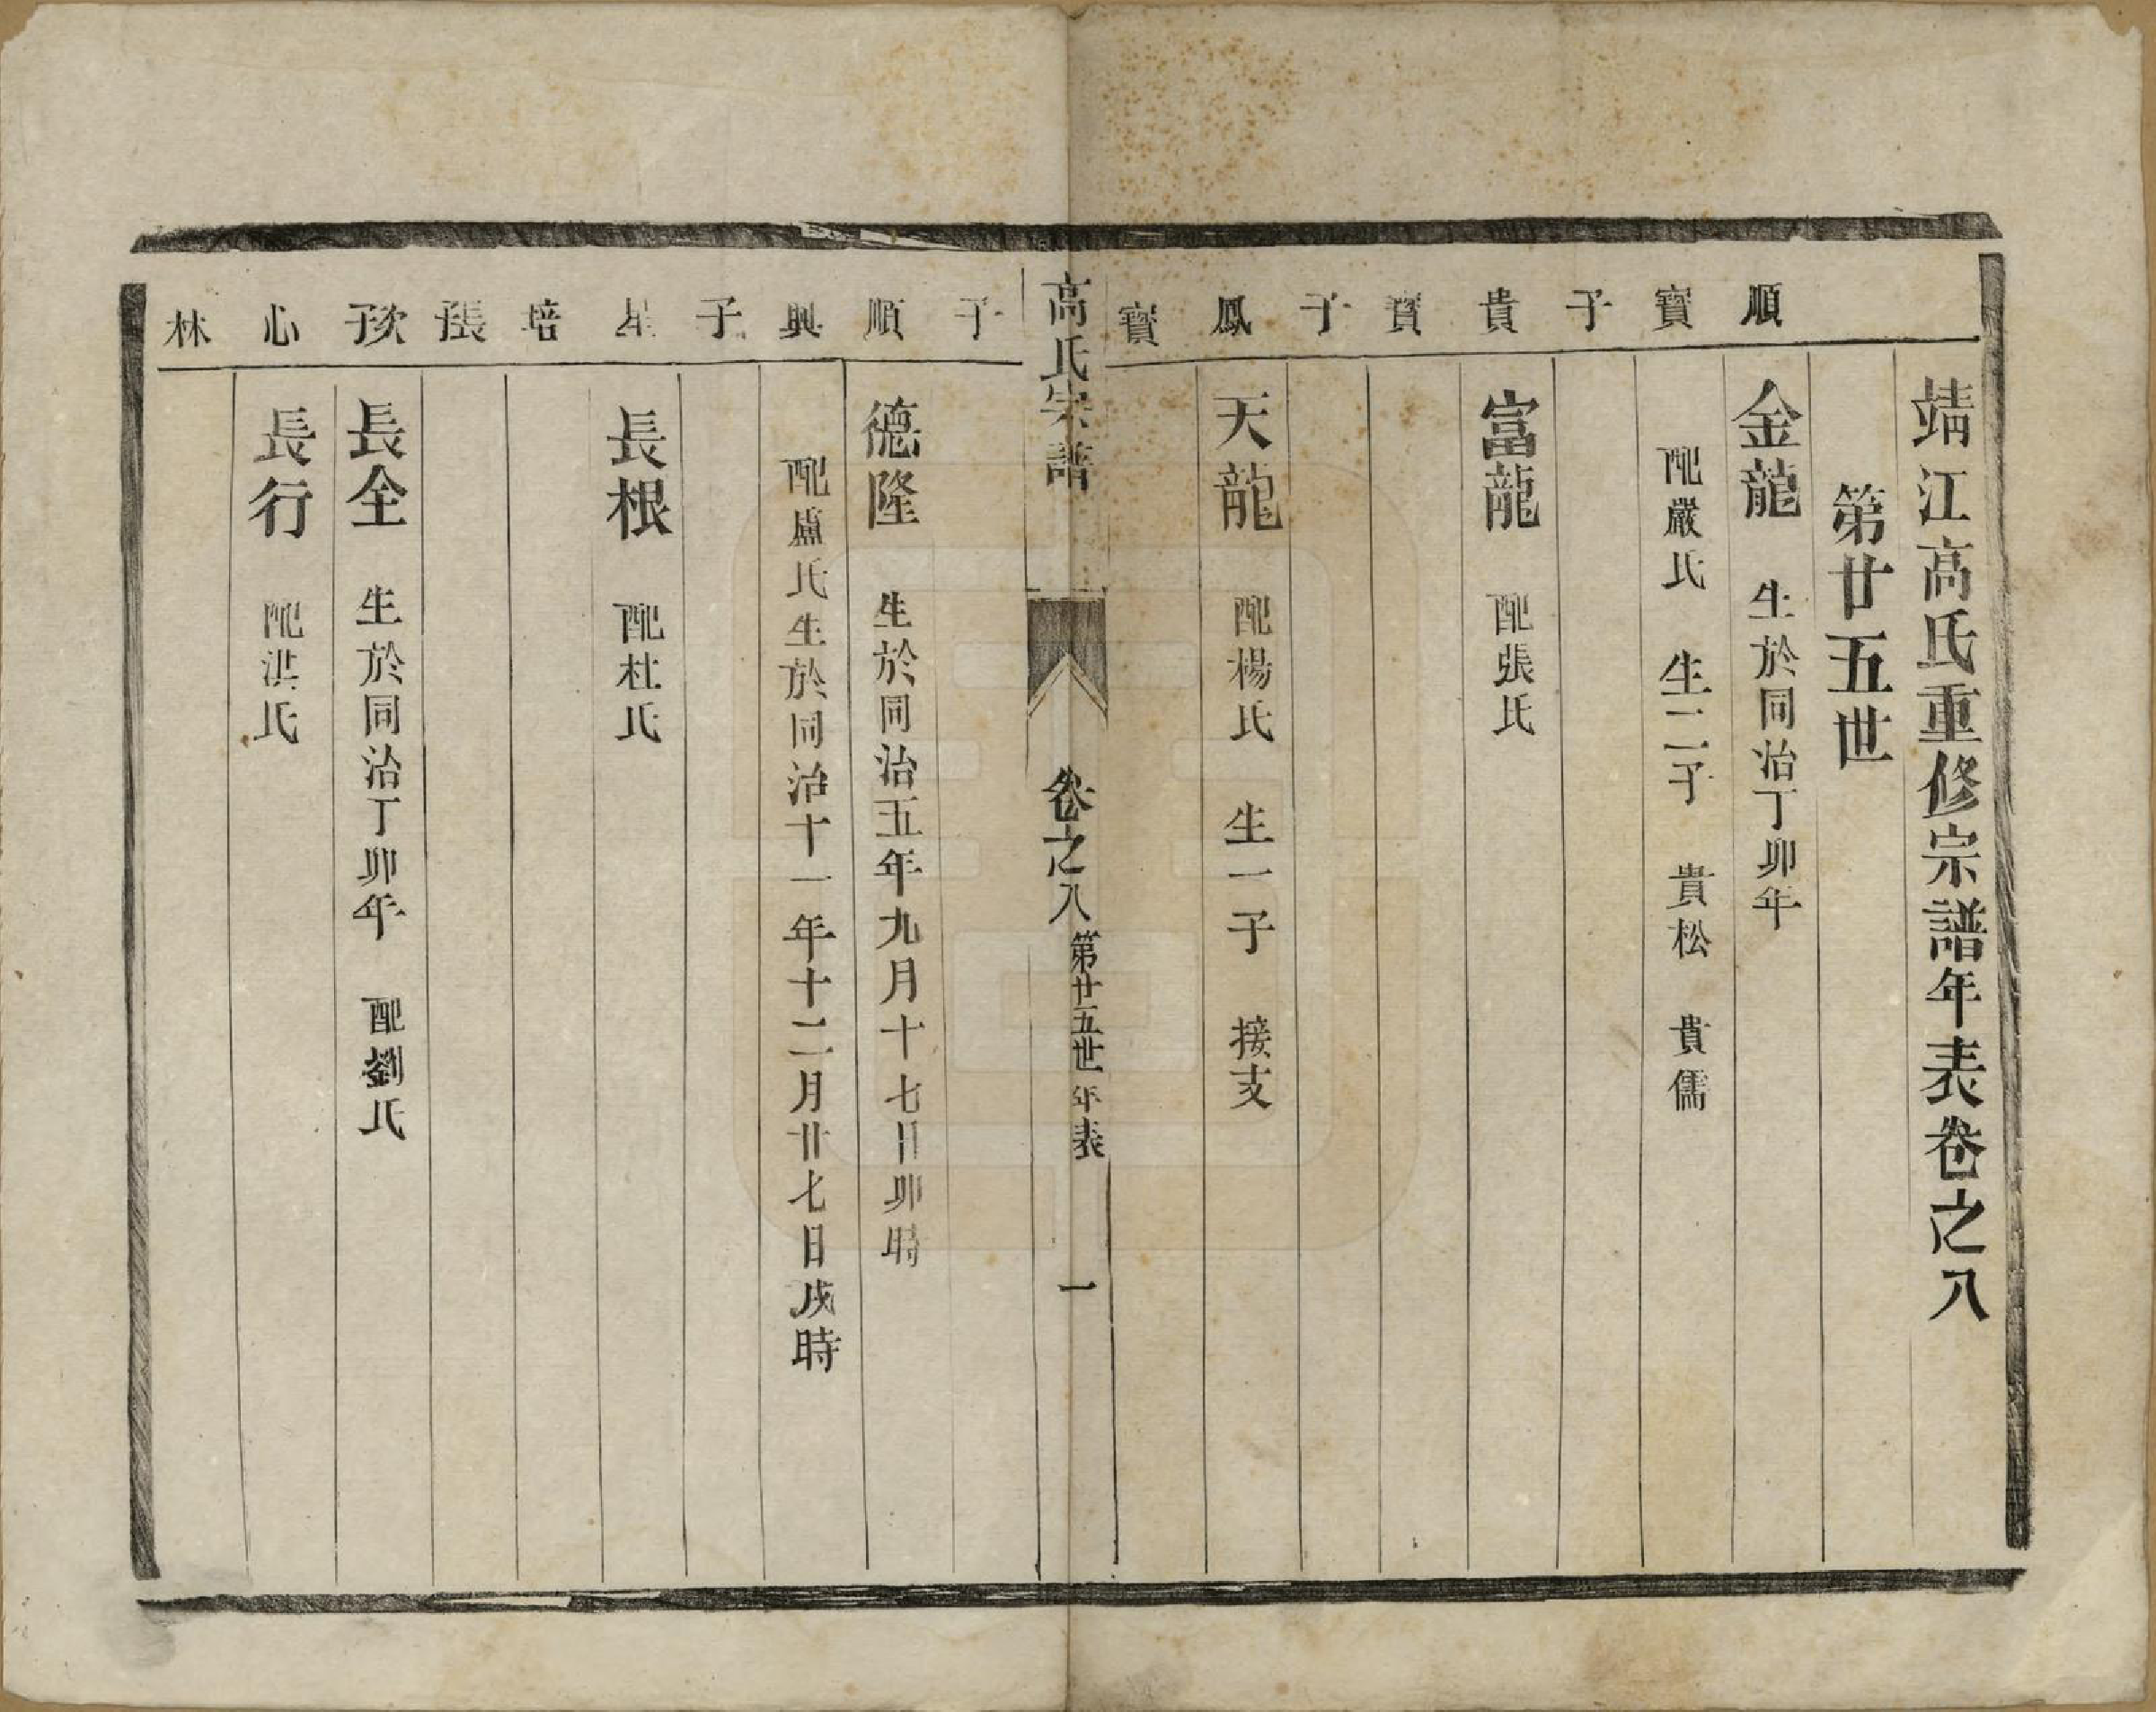 靖江高氏重修宗譜年表卷之八
第廿五世
順
金龍 生於同治丁卯年
寶
配嚴氏 生二子 貴松 貴儒
子
貴
富龍 配張氏
寶
子
鳳
天龍 配楊氏 生一子 接支
寶
高氏宗譜 卷之八 第廿五世年表 一
子
順
德隆 生於同治五年九月十七日卯時
興
配盧氏生於同治十一年十二月廿七日戌時
子
星
長根 配杜氏
培
張
子
長全 生於同治丁卯年 配劉氏
心
長行 配洪氏
林